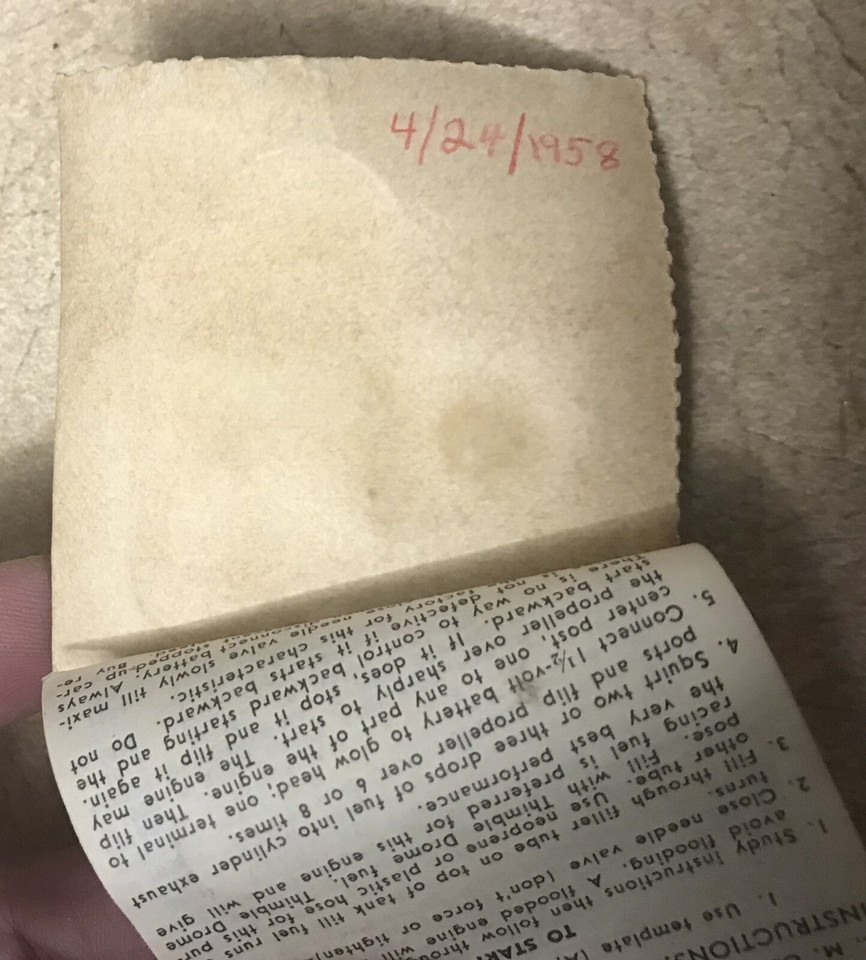 4/24/1958
M.
INSTRUCTIONS
1. Use template (A)
TO STAR
1. Study instructions, then follow through
avoid flooding. A flooded engine will
2. Close needle valve (don't force or tighten)
turns.
3. Fill through filler tube on top of tank till fuel runs
other tube. Use neoprene or plastic hose for this pur
pose. Fill with Thimble Drome fuel. Thimble Drome
racing fuel is preferred for this engine and will give
the very best performance.
4. Squirt two or three drops of fuel into cylinder exhaust
ports and flip propeller over 6 or 8 times.
5. Connect 1½-volt battery to glow head; one terminal to
center post, one to any part of the engine. Then flip
the propeller over sharply to start. The engine may
start backward. If it does, stop it and flip it again.
There is no way to control backward starting and the
not defective if it starts backward. Do not
factory for this characteristic.
needle valve slowly till maxi-
disconnect battery. Always
stopped-up car-
Buy re-